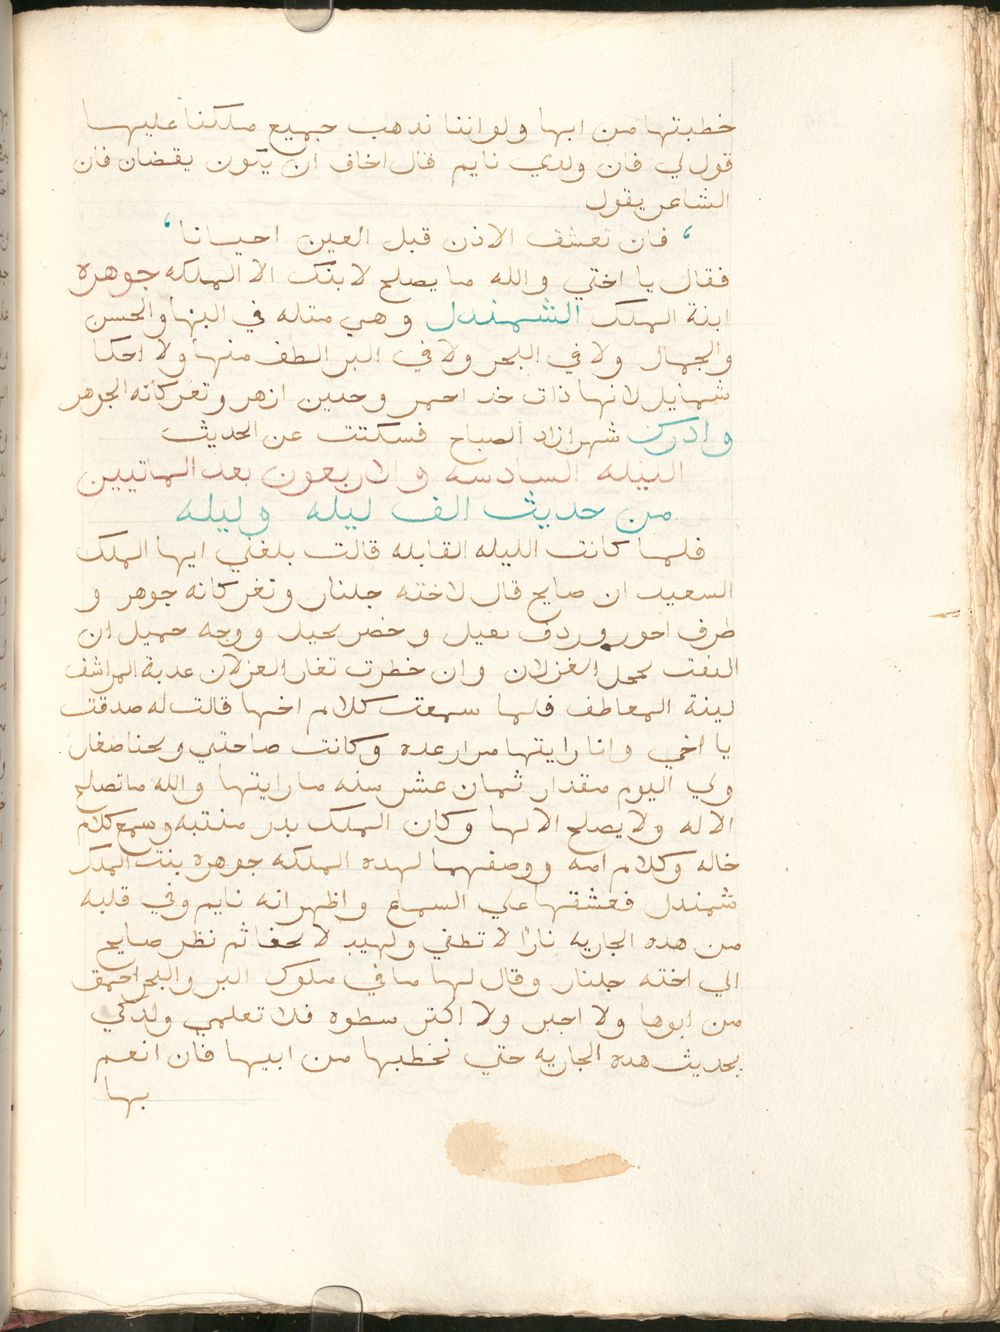 خطبتها من ابها ولو اننا ندهب جميع ملكنا عليها
قول لي فان ولدي نايم قال اخاف ان يكون يقضان فان
الشاعر يقول
فان تعشف الاذن قبل العين احيانا
فقال يا اختي والله ما يصلح لابنك الا الملكه جوهره
ابنة الملك الشمندل وهي متله في البها والحسن
والجمال ولا في البحر ولا في البر الطف منها ولا احكا
شمايل لانها ذات خد احمر وجبين ازهر وتغر كانه الجوهر
وادرك شهرازاد الصباح فسكتت عن الحديث
الليله السادسه والاربعون بعد الماتيين
من حديث الف ليله وليله
فلما كانت الليله القابله قالت بلغني ايها الملك
السعيد ان صايح قال لاخته جلنار وتغر كانه جوهر و
طرف احور وردف تقيل وخضر نحيل ووجه جميل ان
التفت تخجل الغزلان وان خطرت تغار الغزلان عدبة المراشف
لينة المعاطف فلما سمعت كلام اخيها قالت له صدقت
يا اخي وانا رايتها مرار عده وكانت صاحتي ونحنا طغال
ولي اليوم مقدار ثمان عشر سنه ما رايتها والله ما تصلح
الا له ولا يصلح الا لها وكان الملك بدر منتبه وسمع كلام
خاله وكلام امه ووصفهما لهده الملكه جوهره بنت الملك
شمندل فعشقها علي السماع واظهر انه نايم وفي قلبه
من هده الجاريه نارًا لا تطفي ولهيب لا يخفا ثم نظر صايح
الي اخته جلنار وقال لها ما في ملوك البر والبحر احمق
من ابوها ولا اجبر ولا اكتر سطوه فلا تعلمي ولدكي
بحديث هده الجاريه حتي نخطبها من ابيها فان انعم
بها